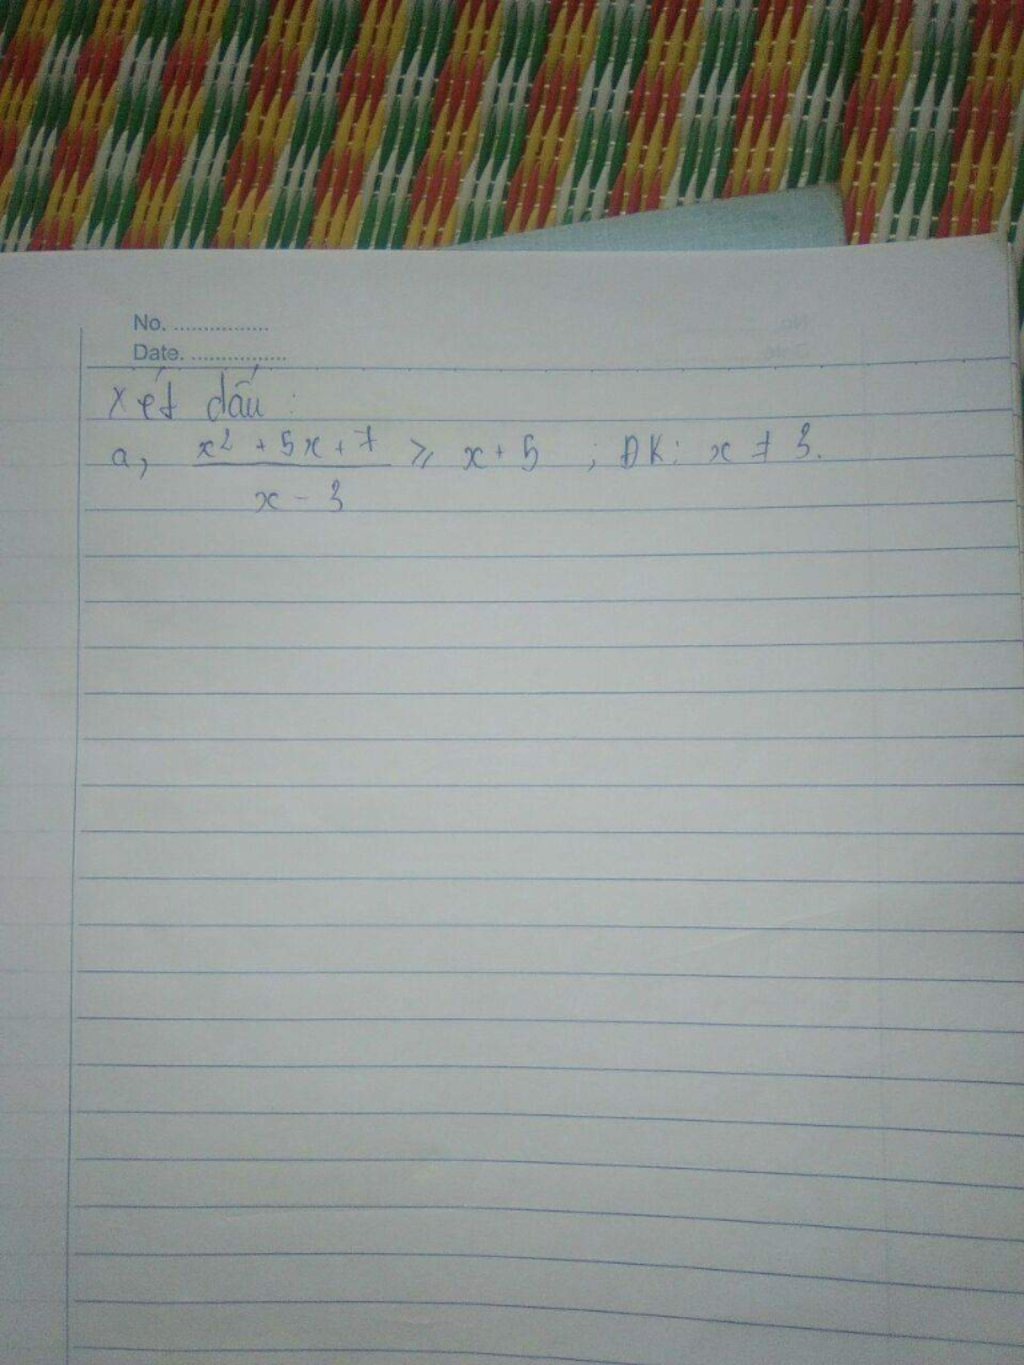 No. ................
Date. ................
Xét dấu:
a, \frac{x^2 + 5x + 7}{x - 3} ⩾ x + 5 ; ĐK: x ≠ 3.